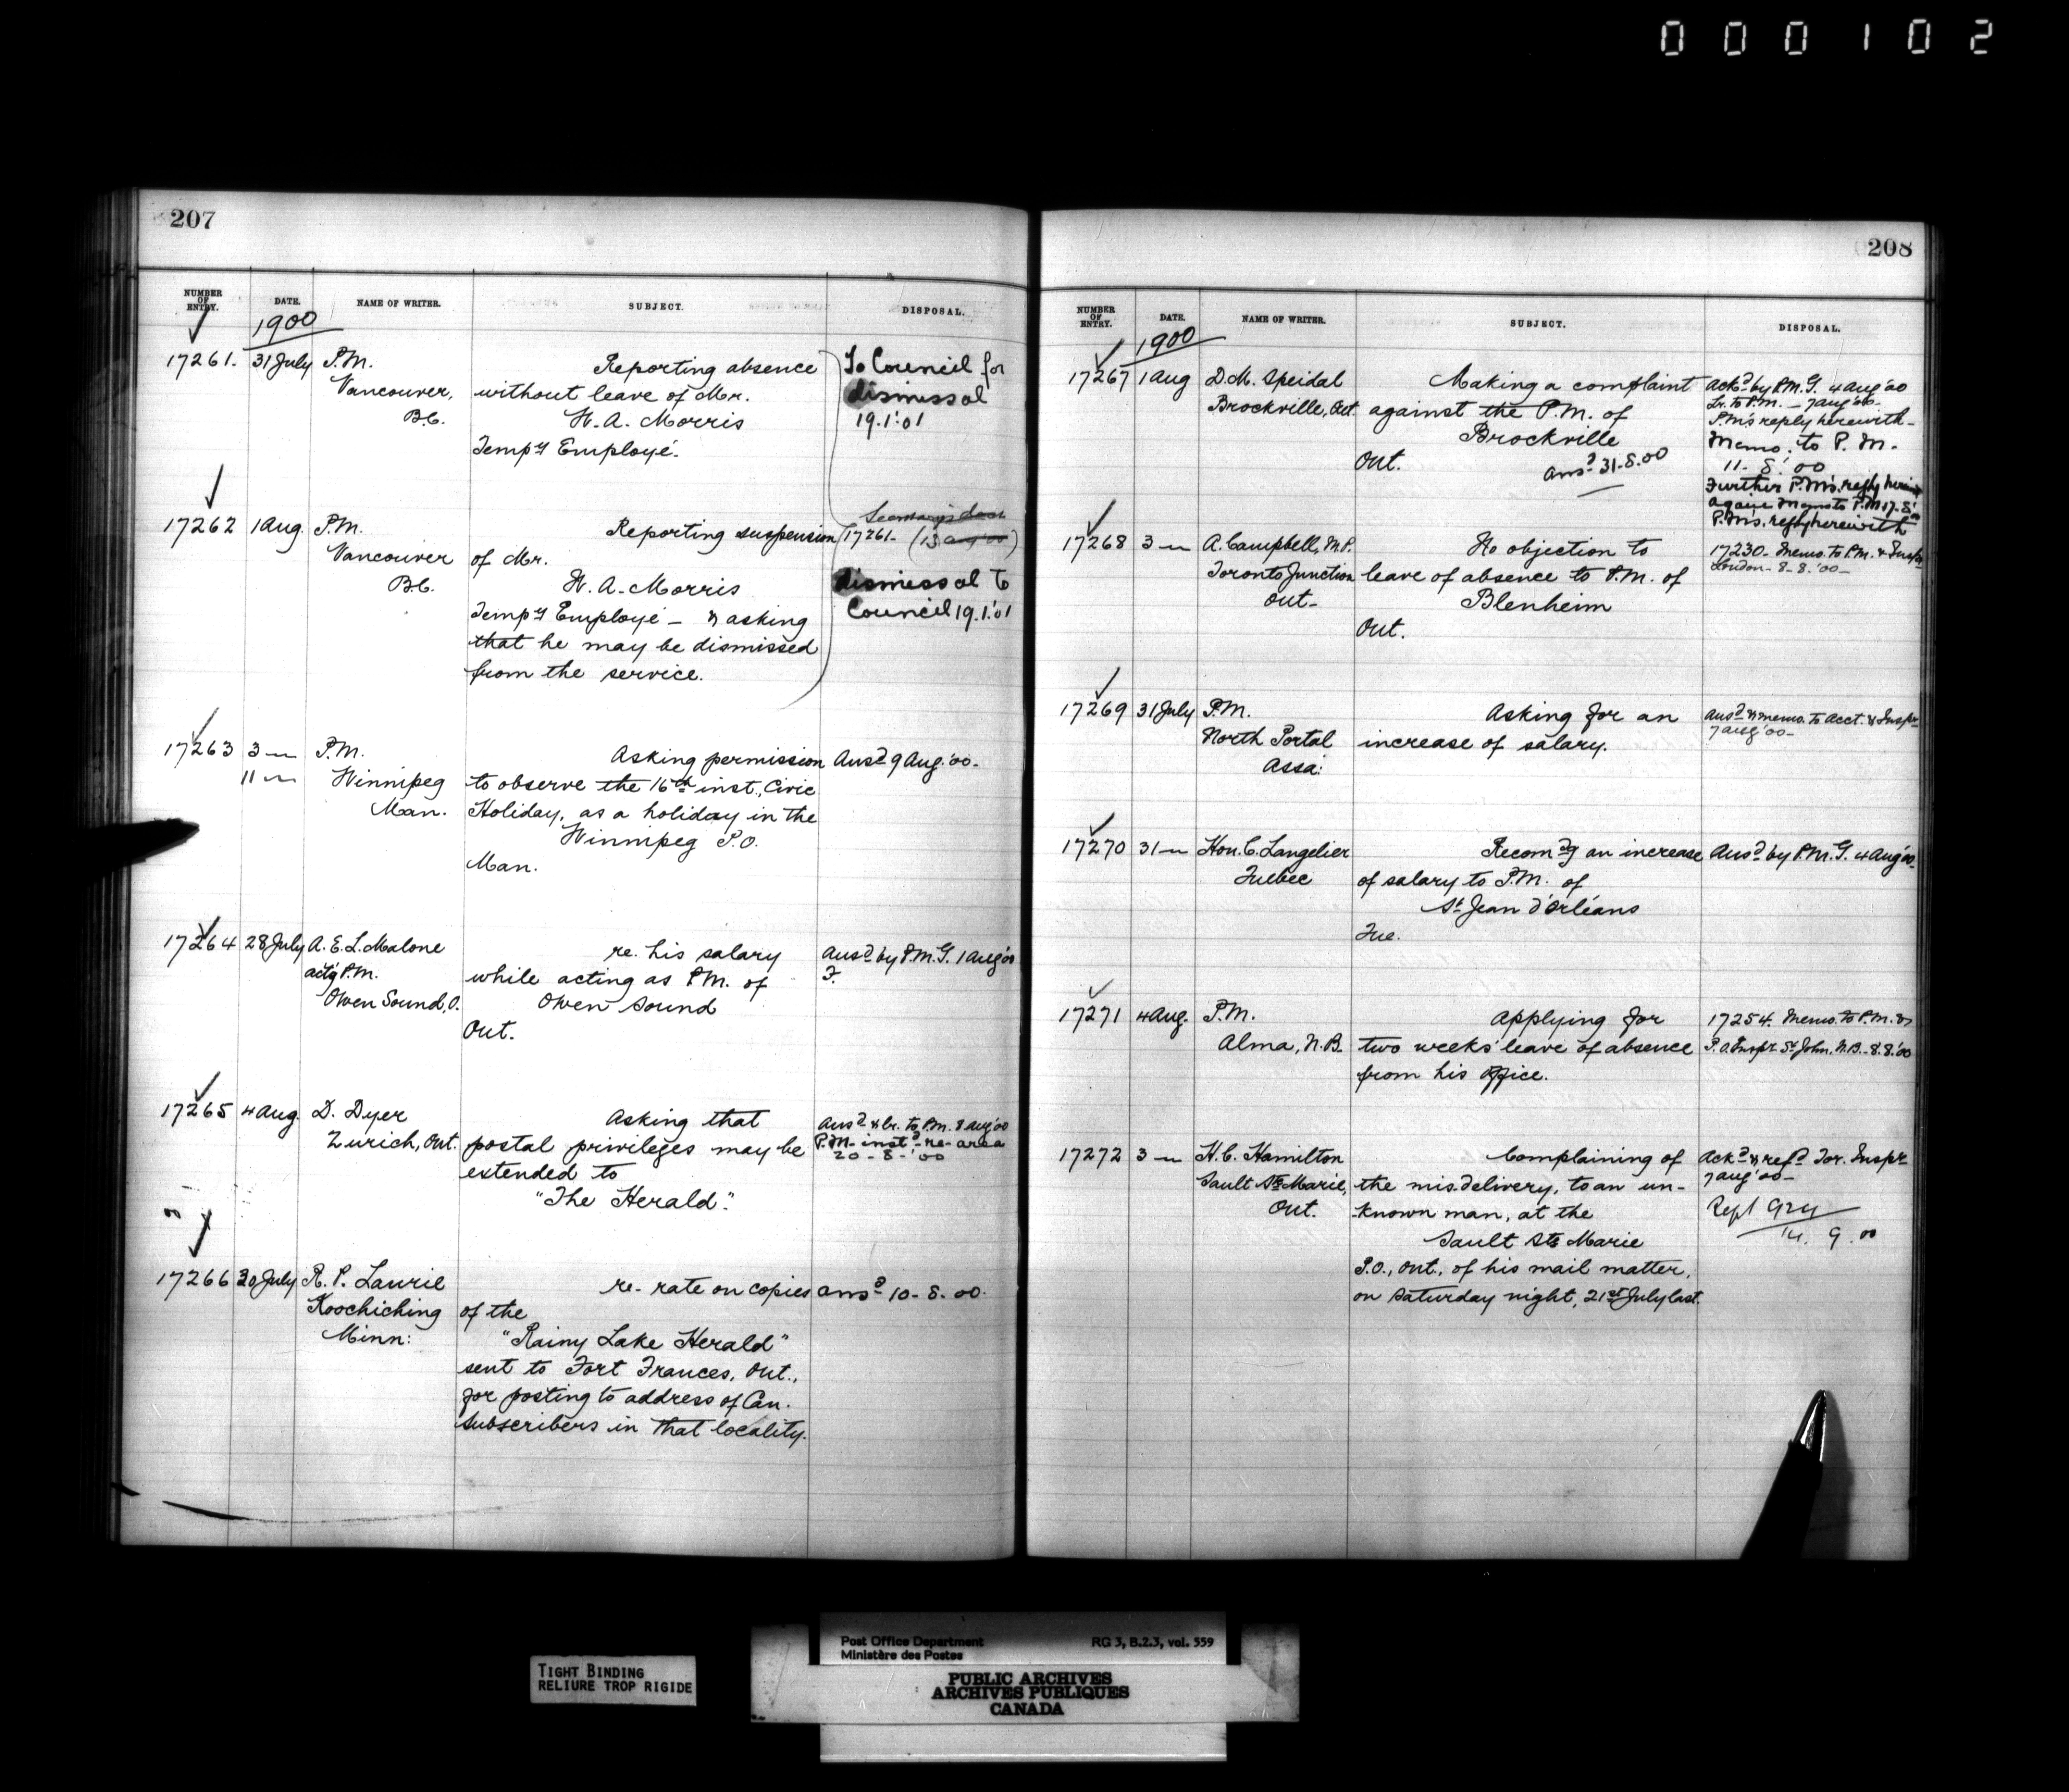 000102
207
NUMBER OF ENTRY. DATE. NAME OF WRITER. SUBJECT. DISPOSAL.
1900
17261. 31 July P.M. Reporting absence To Council for
Vancouver, without leave of Mr. dismissal
B.C. H. A. Morris 19.1.'01
Tempy Employé.
17262 1 Aug. P.M. Reporting suspension 17261- (13 Aug '00)
Vancouver of Mr.
B.C. H. A. Morris dismissal to
Tempy Employé - & asking Council 19.1.'01
that he may be dismissed
from the service.
17263 3 " P.M. Asking permission Ansd 9 Aug. '00-
11 " Winnipeg to observe the 16th inst., Civic
Man. Holiday, as a holiday in the
Winnipeg P.O.
Man.
17264 28 July A. E. L. Malone re. his salary Ansd by P.M.G. 1 Aug '00
actg P.M. while acting as P.M. of F.
Owen Sound, O. Owen Sound
Ont.
17265 4 Aug. D. Dyer Asking that Ansd & lr. to P.M. 8 Aug '00
Zurich, Ont. postal privileges may be P.M. instd -re- area
extended to 20-8-'00
"The Herald".
17266 30 July R. P. Laurie re- rate on copies ansd 10-8.00.
Koochiching of the
Minn: "Rainy Lake Herald"
sent to Fort Frances, Ont.,
for posting to address of Can.
subscribers in that locality.
208
NUMBER OF ENTRY. DATE. NAME OF WRITER. SUBJECT. DISPOSAL.
1900
17267 1 Aug D. M. Speidal Making a complaint Ackd by P.M.G. 4 Aug '00
Brockville, Ont. against the P.M. of Lr. to P.M. - 7 Aug '00-
Brockville P.M's reply herewith-
Ont. ansd 31-8.00 Memo. to P.M.
11-8.'00
Further P.M's. reply herewith
again Memo to P.M. 17-8.'00
P.M's. reply herewith
17268 3 " A. Campbell, M.P. No objection to 17230- Memo. to P.M. & Inspr
Toronto Junction leave of absence to P.M. of London-8-8.'00-
Ont- Blenheim
Ont.
17269 31 July P.M. Asking for an Ansd & memo. to Acct. & Inspr
North Portal increase of salary. 7 Aug '00-
Assa:
17270 31 " Hon. C. Langelier Recomdg an increase Ansd by P.M.G. 4 Aug '00-
Quebec of salary to P.M. of
St Jean d'Orléans
Que.
17271 4 Aug. P.M. Applying for 17254. Memo. to P.M. &
Alma, N.B. two weeks' leave of absence P.O. Inspr St John, N.B.-8.8.'00
from his office.
17272 3 " H. C. Hamilton Complaining of Ackd & refd Tor. Inspr
Sault Ste Marie, the mis.delivery, to an un- 7 Aug '00-
Ont. known man, at the Rept
Sault Ste Marie 14. 9. 00
P.O., Ont., of his mail matter,
on Saturday night, 21st July last.
TIGHT BINDING
RELIURE TROP RIGIDE
Post Office Department RG 3, B.2.3, vol. 559
Ministère des Postes
PUBLIC ARCHIVES
ARCHIVES PUBLIQUES
CANADA